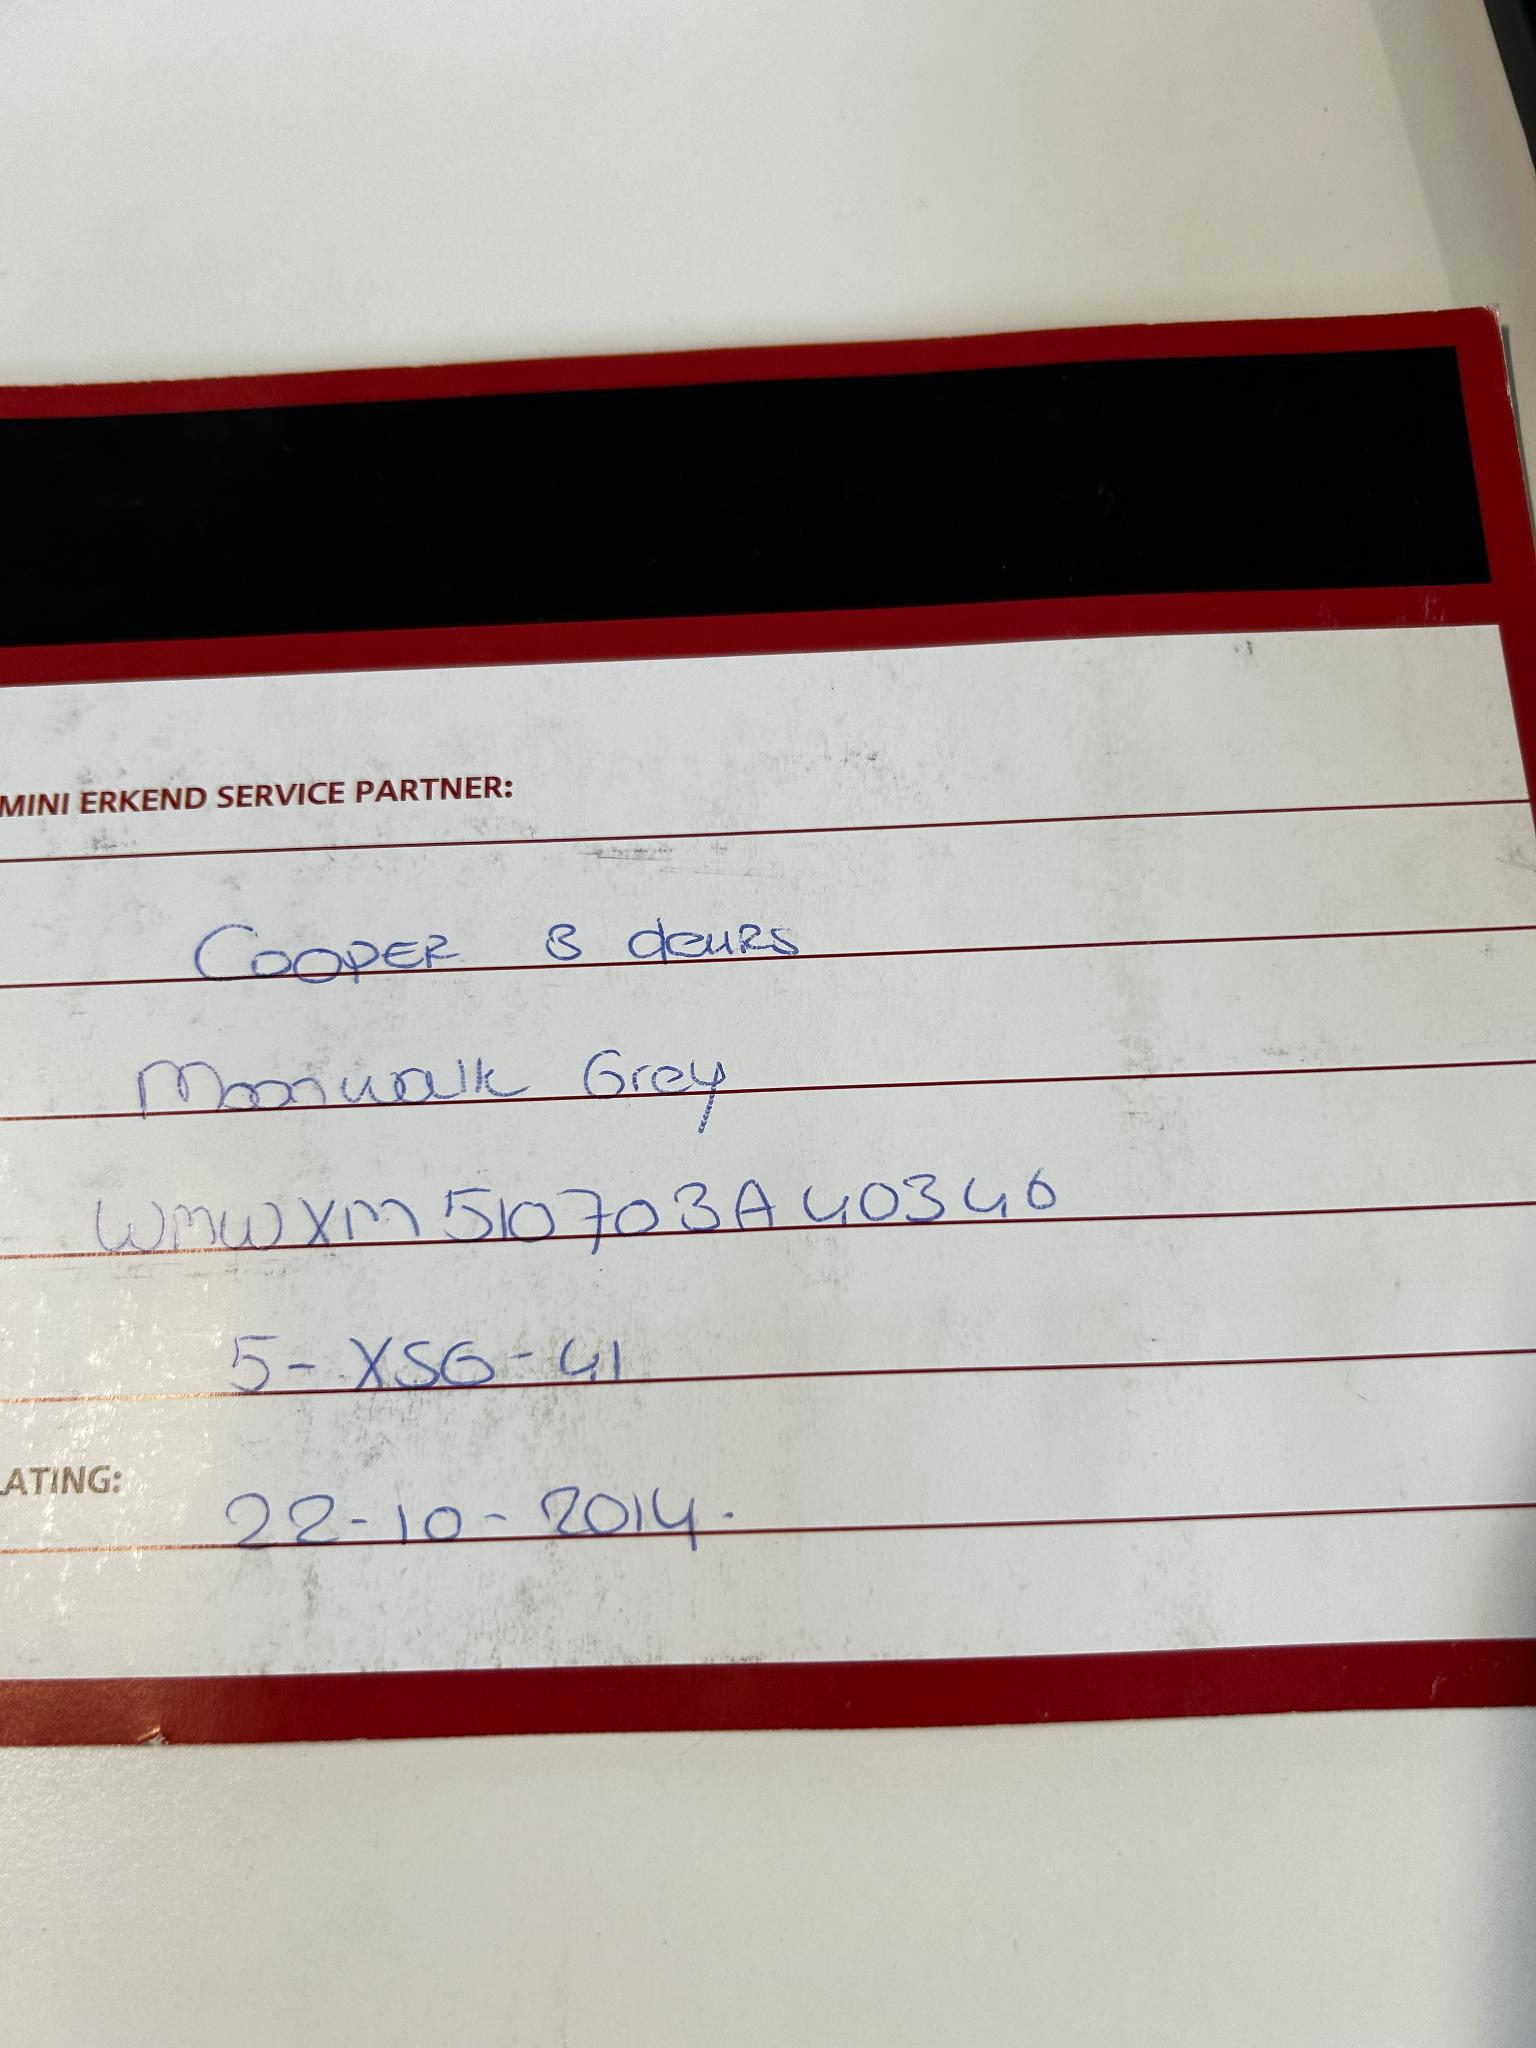 MINI ERKEND SERVICE PARTNER:
COOPER 3 deuRS
Moonwalk Grey
WMWXM510703A40340
5-XSG-41
LATING: 22-10-2014.